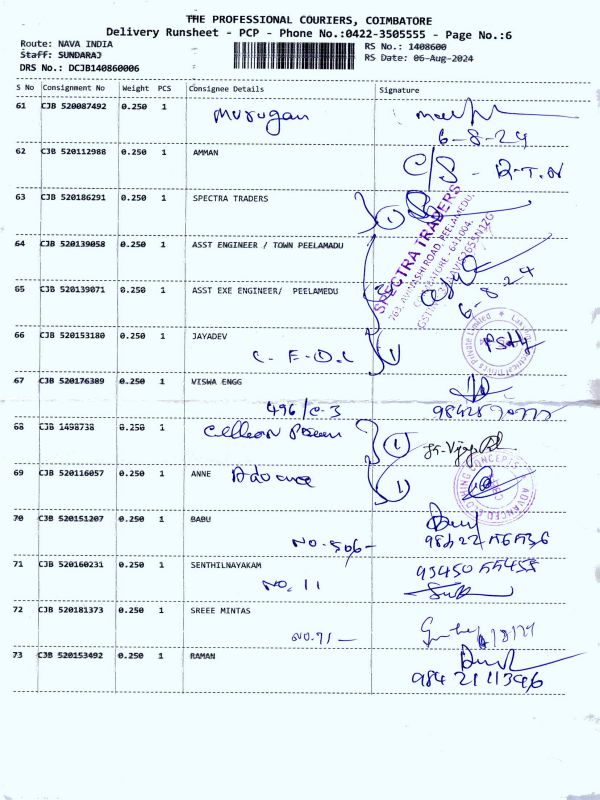 THE PROFESSIONAL COURIERS, COIMBATORE
Delivery Runsheet - PCP - Phone No.:0422-3505555 - Page No.:6
Route: NAVA INDIA
Staff: SUNDARAJ
DRS No.: DCJB140860006
RS No.: 1408600
RS Date: 06-Aug-2024
S No Consignment No Weight PCS Consignee Details Signature
61 CJB 520087492 0.250 1 Murugan
6-8-24
62 CJB 520112988 0.250 1 AMMAN C/S - R.T.N
63 CJB 520186291 0.250 1 SPECTRA TRADERS 1
SPECTRA TRADERS
763, AVINASHI ROAD, PEELAMEDU,
COIMBATORE - 641 004.
64 CJB 520139058 0.250 1 ASST ENGINEER / TOWN PEELAMADU
65 CJB 520139071 0.250 1 ASST EXE ENGINEER/ PEELAMEDU
6-8-24
66 CJB 520153180 0.250 1 JAYADEV
C. F. D. L 1
67 CJB 520176389 0.250 1 VISWA ENGG
496/C-3
68 CJB 1498738 0.250 1 1
69 CJB 520116057 0.250 1 ANNE Advance 1
ADVANCED CONCEPTS
70 CJB 520151207 0.250 1 BABU
NO. 506-
71 CJB 520160231 0.250 1 SENTHILNAYAKAM
NO. 11
72 CJB 520181373 0.250 1 SREEE MINTAS
NO. 71 -
73 CJB 520153492 0.250 1 RAMAN
98421 11346